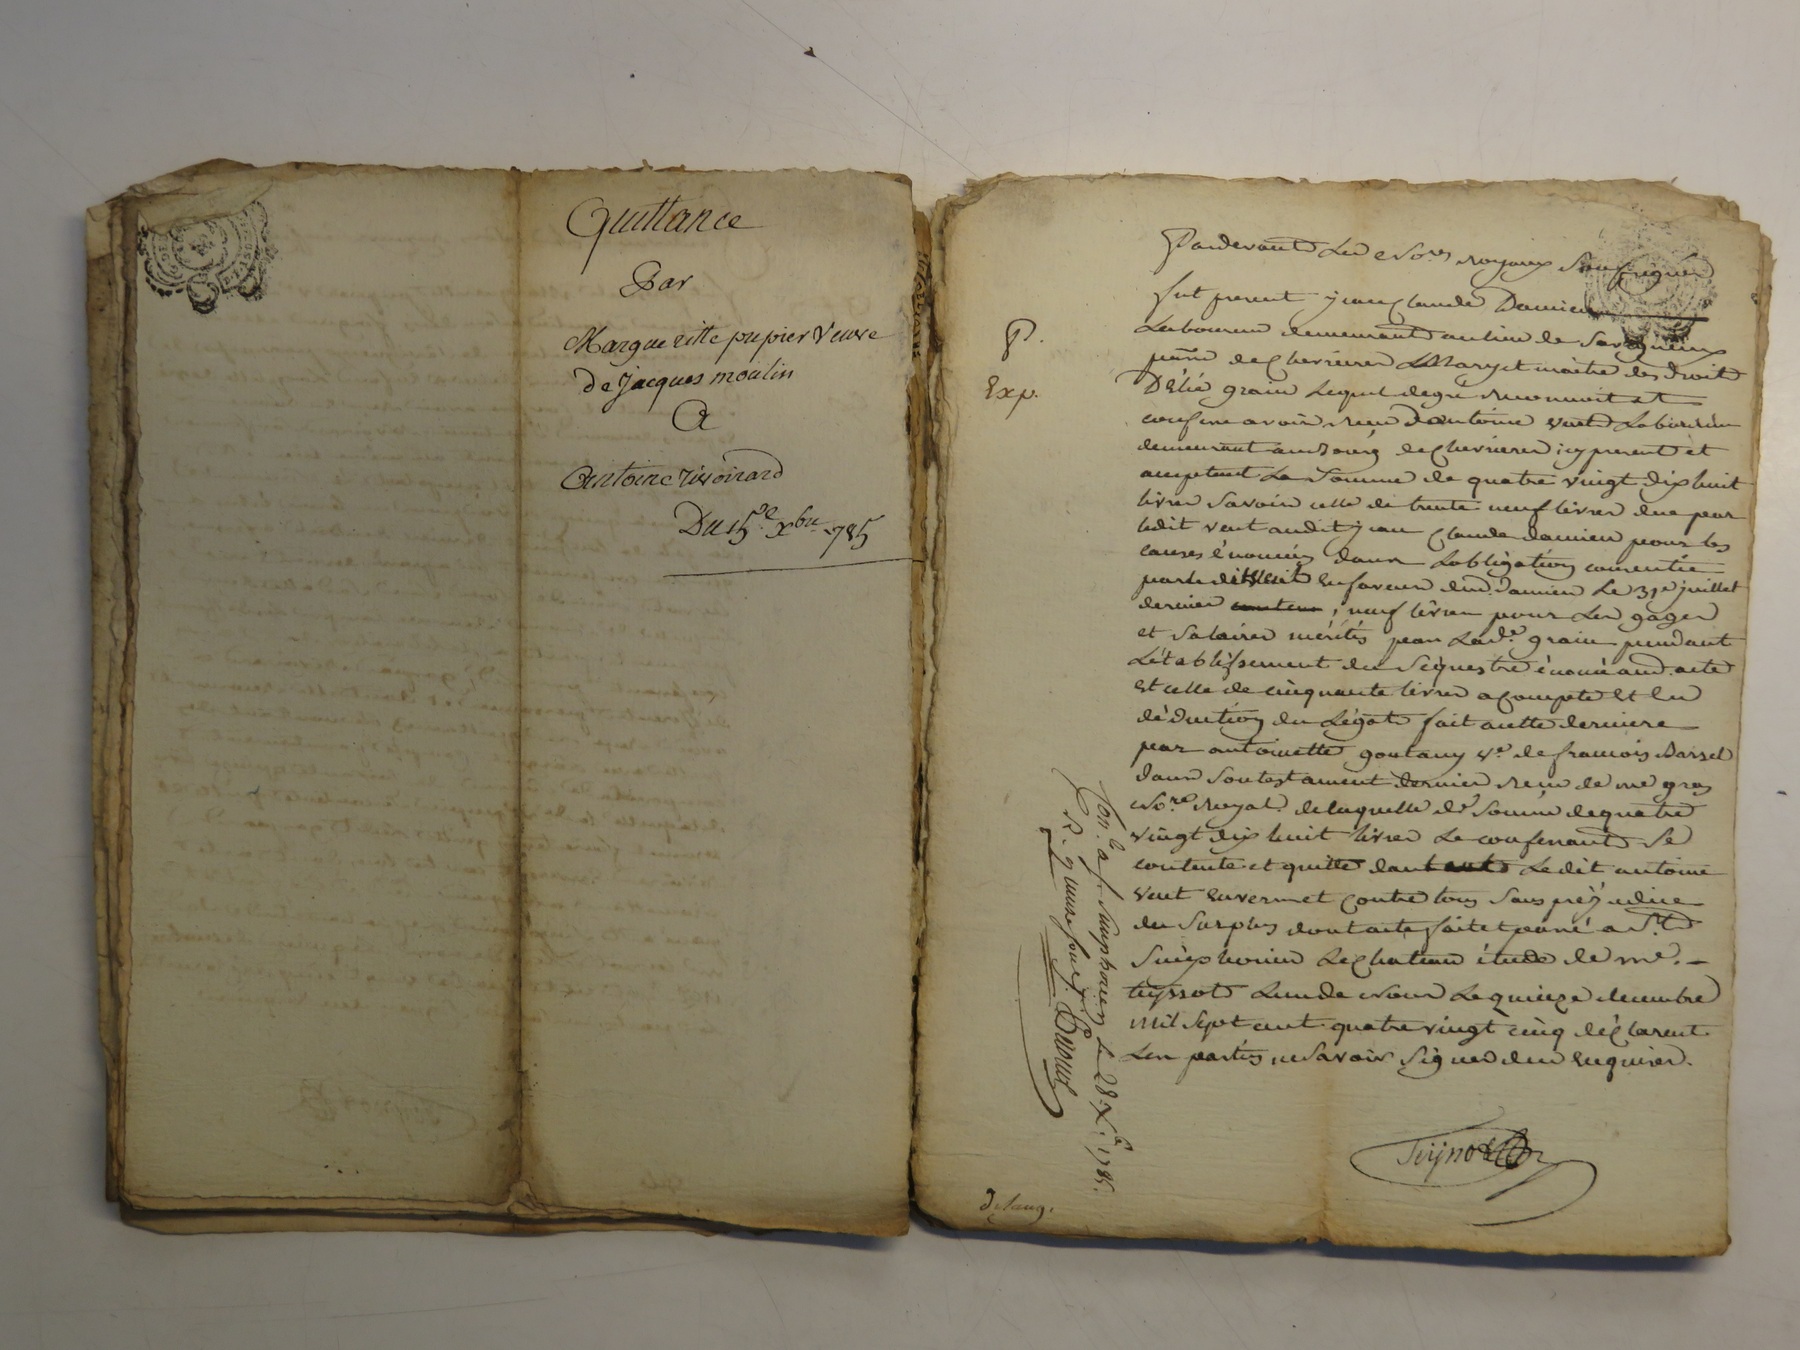 Quittance
Par
Margueritte pupier Veuve
De Jacques moulin
A
Antoine rivoirard
Du 15e. Xbre 1785
Pardevant Les Nores royaux Soussignés
P.
Exp.
fut present jean Claude Damien
Laboureur demeurant au lieu de Savigneux
de Chevrieres Mary et maitre des droits
grain Lequel degré reconnoit et
confesse avoir reçu D'antoine vent Laboureur
demeurant au Bourg de Chevrieres icy present et
acceptant La Somme de quatre vingt dix huit
livres Savoir celle de trente neuf livres due par
ledit vent audit jean Claude damien pour les
causes énoncées dans L'obligation consentie
par le dit Vent en faveur dud. Damien Le 31e juillet
dernier neuf livres pour Les gages
et Salaires mérités par Lade. grain pendant
L'établissement du Séquestre énoncé aud. acte
Et celle de cinquante livres acompte Et En
déduction du Légat fait a cette derniere
par antoinette goutany ve. de francois
dans Son testament dernier reçu de me gros
Nore. Royal. de laquelle de. Somme de quatre
vingt dix huit livres Le confessant Se
contente et quitte Ledit antoine
vent envers et contre tous Sans préjudice
du Surplus dont acte fait et passé a St.
Simphorien Le Chateau étude de me.
L'un de Nous Le quinze decembre
mil Sept cent quatre vingt cinq déclarent
Les parties ne Savoir Signer de ce Enquises.
Con.lé a St. Simphorien le 28 Xbre 1785.
R. quinze sous.